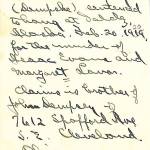 (Dempsey) sentenced
to hang at Saldg,
Alaska, Feb. 20, 1919,
for the murder of
Isaac Evans and
Margaret Lavor.
Claims is brother of
John Dempsey of
7612 Spafford Ave
S. E.
Cleveland.